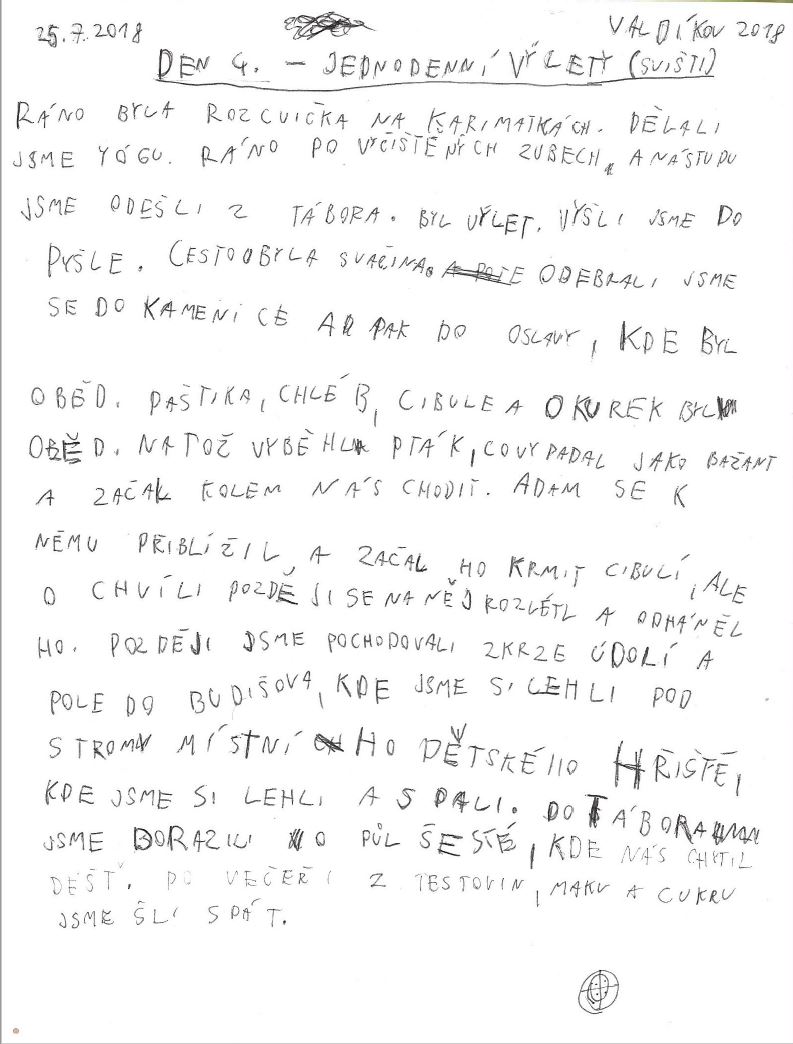 25.7.2018 VALDÍKOV 2018
DEN 4. – JEDNODENNÍ VÝLETY (SVIŠTI)
RÁNO BYLA ROZCVIČKA NA KARIMATKÁCH. DĚLALI
JSME YÓGU. RÁNO PO VYČIŠTĚNÝCH ZUBECH, A NÁSTUPU
JSME ODEŠLI Z TÁBORA. BYL VÝLET. VYŠLI JSME DO
PYŠLE. CESTOU BYLA SVAČINA. ODEBRALI JSME
SE DO KAMENICE A PAK DO OSLAVY, KDE BYL
OBĚD. PAŠTIKA, CHLÉB, CIBULE A OKUREK BYL
OBĚD. NATOŽ VYBĚHL PTÁK, CO VYPADAL JAKO BAŽANT
A ZAČAL KOLEM NÁS CHODIT. ADAM SE K
NĚMU PŘIBLÍŽIL, A ZAČAL HO KRMIT CIBULÍ, ALE
O CHVÍLI POZDĚJI SE NA NĚJ ROZLÉTL A ODHÁNĚL
HO. POZDĚJI JSME POCHODOVALI ZKRZE ÚDOLÍ A
POLE DO BUDIŠOVA, KDE JSME SI LEHLI POD
STROMY MÍSTNÍHO DĚTSKÉHO HŘIŠTĚ,
KDE JSME SI LEHLI A SPALI. DO TÁBORA
JSME DORAZILI O PŮL ŠESTÉ, KDE NÁS CHYTIL
DEŠŤ. PO VEČEŘI Z TESTOVIN, MAKU A CUKRU
JSME ŠLI SPÁT.